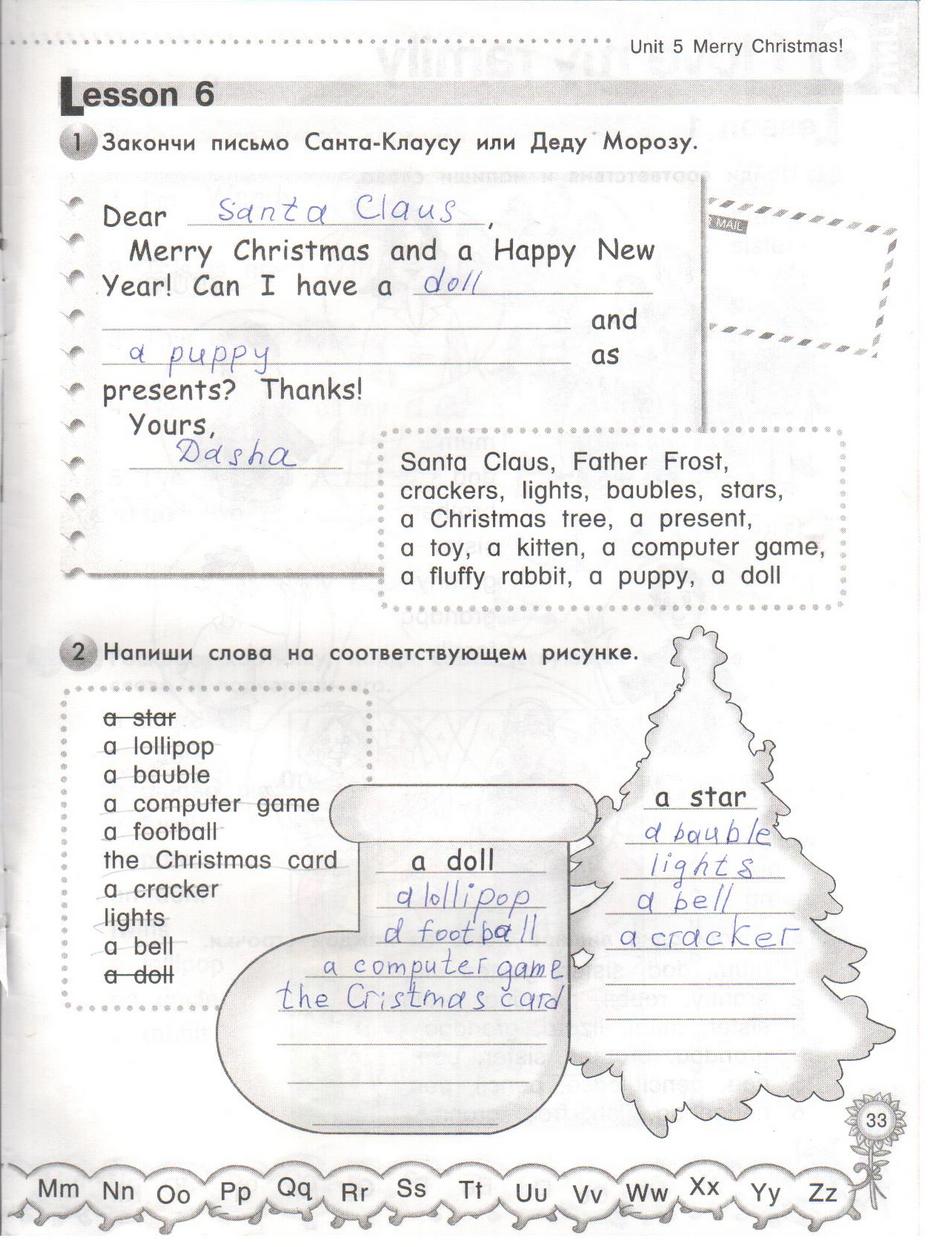 Unit 5 Merry Christmas!
Lesson 6
1 Закончи письмо Санта-Клаусу или Деду Морозу.
MAIL
Dear Santa Claus,
Merry Christmas and a Happy New
Year! Can I have a doll
and
a puppy as
presents? Thanks!
Yours,
Dasha
Santa Claus, Father Frost,
crackers, lights, baubles, stars,
a Christmas tree, a present,
a toy, a kitten, a computer game,
a fluffy rabbit, a puppy, a doll
2 Напиши слова на соответствующем рисунке.
a star
a lollipop
a bauble
a computer game
a football
the Christmas card
a cracker
lights
a bell
a doll
a doll
a lollipop
a football
a computer game
the Cristmas card
a star
a bauble
lights
a bell
a cracker
33
Mm Nn Oo Pp Qq Rr Ss Tt Uu Vv Ww Xx Yy Zz